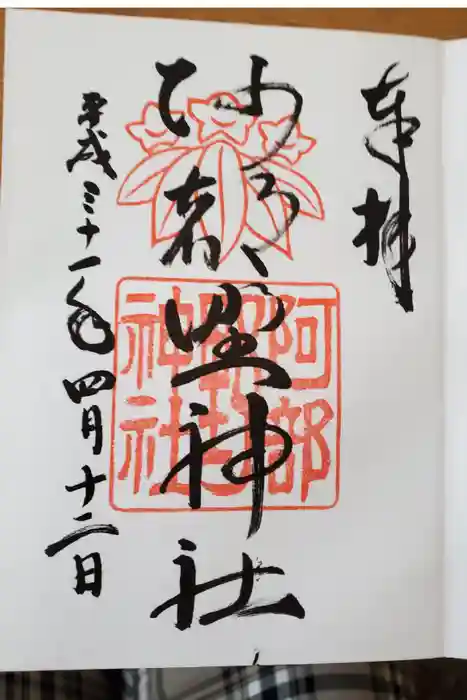 奉拝
阿部野神社
平成三十一年四月十二日
阿部
神社